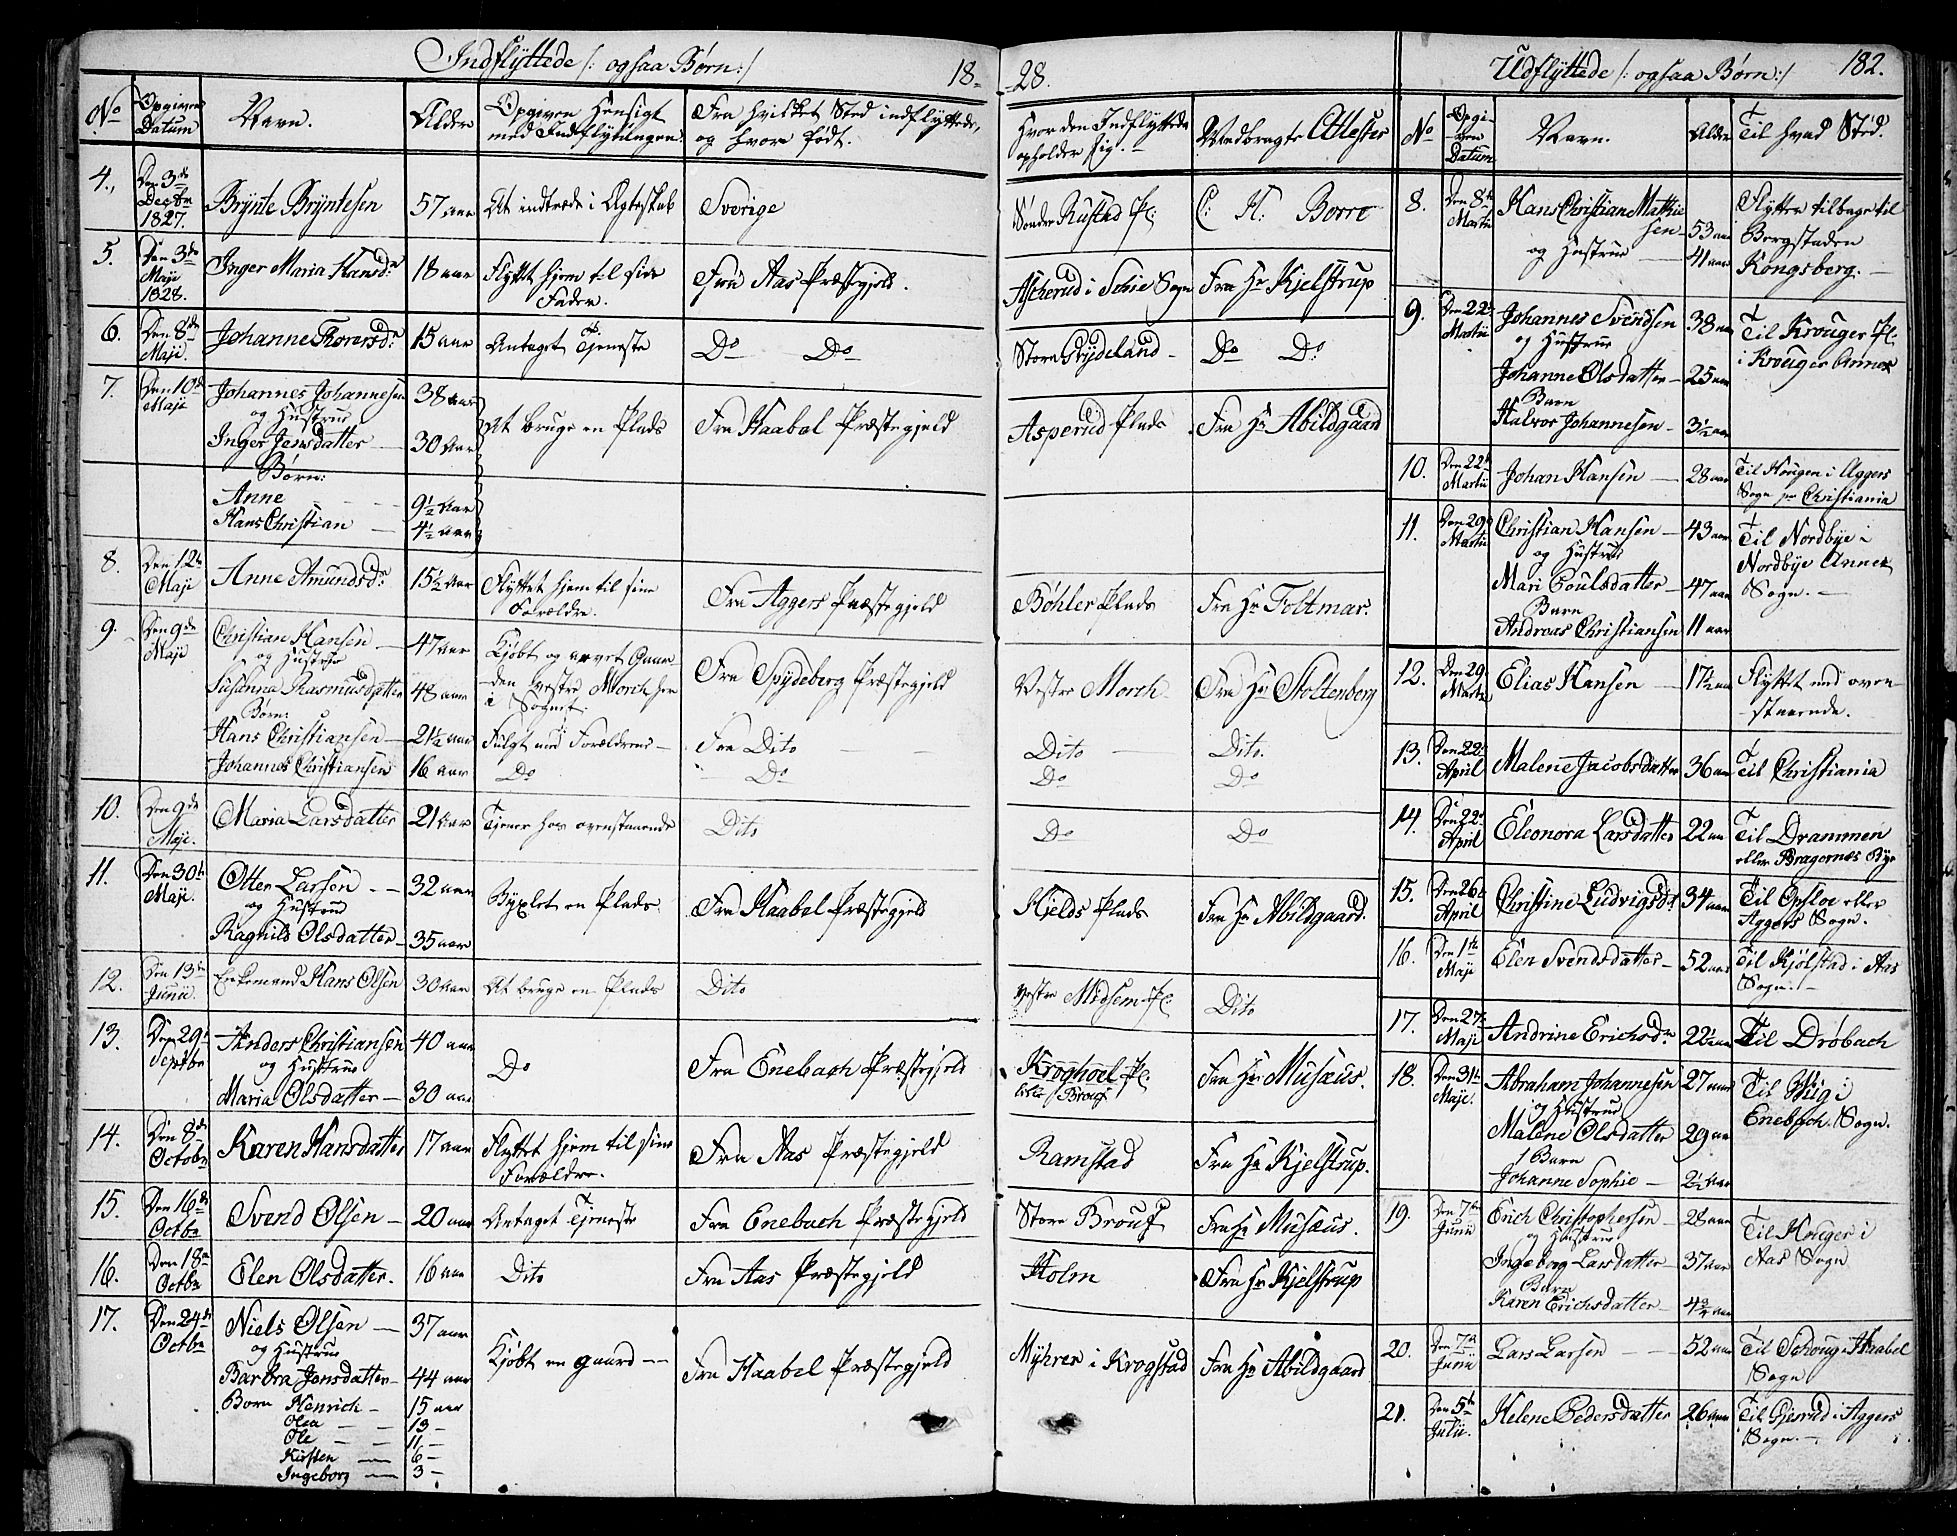 Indflyttede /: ogsaa Børn:/ 18-28.
No Opgiven Datum Navn. Alder Opgiven Hensigt med Indflytningen. Fra hvilket Sted indflyttede, og hvor født. Hvor den Indflyttede opholder sig. Medbragte Attester
4., Den 3de Decbr 1827. Brynte Bryntesen 57 aar At indtræde i Ægteskab Sverige Søndre Rustad Pl: C: H: Borre
5. Den 3de Maji 1828. Inger Maria Hansdr 18 aar Flyttet hjem til sin Fader. Fra Aas Præstegjeld. Ascherud i Schie Sogn Fra Hr Kjelstrup
6. Den 8de Maji. Johanne Thoresdr 15 aar Antaget Tjeneste Do Do Store Rydeland Do Do
7. Den 10de Maji Johannes Johannesen 38 aar
og Hustrue
Inger Jensdatter 30 aar At bruge en Plads Fra Haabøl Præstegjeld Asperud Plads Fra Hr Abildgaard
Børn:
Anne 9½ aar
Hans Christian 4½ aar
8. Den 12te Maji Anne Amundsdr 15½ aar Flyttet hjem til sine Forældre. Fra Aggers Præstegjeld Bøhler Plads Fra Hr Foltmar.
9. Den 9de Maji Christian Hansen 47 aar
og Hustrue
Susanna Rasmusdatter 48 aar Kjøbt og arvet Gaarden Vestre Morch her i Sognet. Fra Spydeberg Præstegjeld Vestre Morch Fra Hr Stoltenberg
Børn:
Hans Christiansen 21½ aar Fulgt med Forældrene Fra Dito Dito Dito.
Johannes Christiansen 16 aar Do Do Do Do
10. Den 9de Maji. Maria Larsdatter 21 aar Tjener hos ovenstaaende Dito Do Do
11. Den 30te Maji. Otter Larsen 32 aar
og Hustrue
Ragnild Olsdatter 35 aar Byxlet en Plads. Fra Haabøl Præstegjeld Kjelds Plads Fra Hr Abildgaard.
12. Den 13de Junii Enkemand Hans Olsen 30 aar At bruge en Plads Dito Vestre Midsem Pl: Dito
13. Den 29de Septbr Anders Christiansen 40 aar
og Hustrue
Maria Olsdatter 30 aar Do Fra Enebach Præstegjeld Kroghoel Pl: Lille Broug Fra Hr Musæus.
14. Den 8de Octobr Karen Hansdatter 17 aar Flyttet hjem til sine Forældre. Fra Aas Præstegjeld Ramstad Fra Hr Kjelstrup.
15. Den 16de Octbr Svend Olsen 20 aar Antaget Tjeneste Fra Enebach Præstegjeld Store Broug Fra Hr Musæus.
16. Den 18de Octbr Elen Olsdatter. 16 aar Dito Fra Aas Præstegjeld Holm Fra Hr Kjelstrup
17. Den 24de Octbr Niels Olsen 37 aar
og Hustrue
Barbra Jensdatter 44 aar Kjøbt en gaard Fra Haabel Præstegjeld Myhrer i Krogstad Fra Hr Abildgaard
Børn Henrich 15 aar
Olea 13
Ole 11
Kirsten 6
Ingeborg 3
Udflyttede /: ogsaa Børn:/ 182.
No Opgiven Datum Navn. Alder Til hvad Sted.
8. Den 8de Martii Hans Christian Mathiesen 53 aar
og Hustrue 41 aar Flytter tilbage til Bergstaden Kongsberg.
9. Den 22de Martii Johannes Svendsen 38 aar
og Hustrue
Johanne Olsdatter 25 aar Til Krouger Pl: i Krouger Annex
Barn
Halvor Johannesen 3½ aar
10. Den 22de Martii Johan Hansen 28 aar Til Hougen i Aggers Sogn Christiania
11. Den 29de Martii Christian Hansen 43 aar
og Hustrue
Mari Poulsdatter 47 aar Til Nordbye i Nordbye Annex Sogn.
Barn
Andreas Christiansen 11 aar
12. Den 29de Martii Elias Hansen 17½ aar Flyttet med ovenstaaende.
13. Den 22de April Malene Jacobsdatter 36 aar Til Christiania
14. Den 22de April Eleonora Larsdatter 22 aar Til Drammen eller Bragernæs Bye
15. Den 26de April Christine Ludvigsdr 34 aar Til Opsloe eller Aggers Sogn.
16. Den 1te Maji Elen Svendsdatter 52 aar Til Kjølstad i Aas Sogn.
17. Den 27de Maji Andrine Erichsdr 22½ aar Til Drøbach
18. Den 31te Maji. Abraham Johannesen 27 aar
og Hustrue
Malene Olsdatter 29 aar Til Wiig i Enebach Sogn.
1 Barn
Johanne Sophie 2½ aar
19. Den 7de Junii Erich Christophersen 28 aar
og Hustrue
Ingeborg Larsdatter 37 aar Til Houger i Aas Sogn
Barn
Karen Erichsdatter 4¾ aar
20. Den 7de Junii Lars Larsen 52 aar Til Schoug i Haabel Sogn
21. Den 5te Julii Helene Pedersdatter 26 aar Til Gjerud i Aggers Sogn.